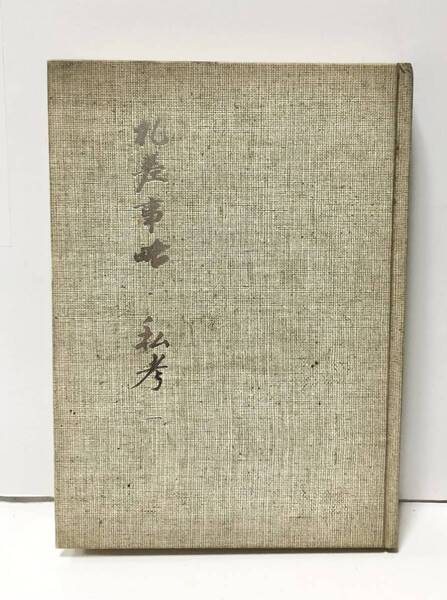 札差事略 私考 一